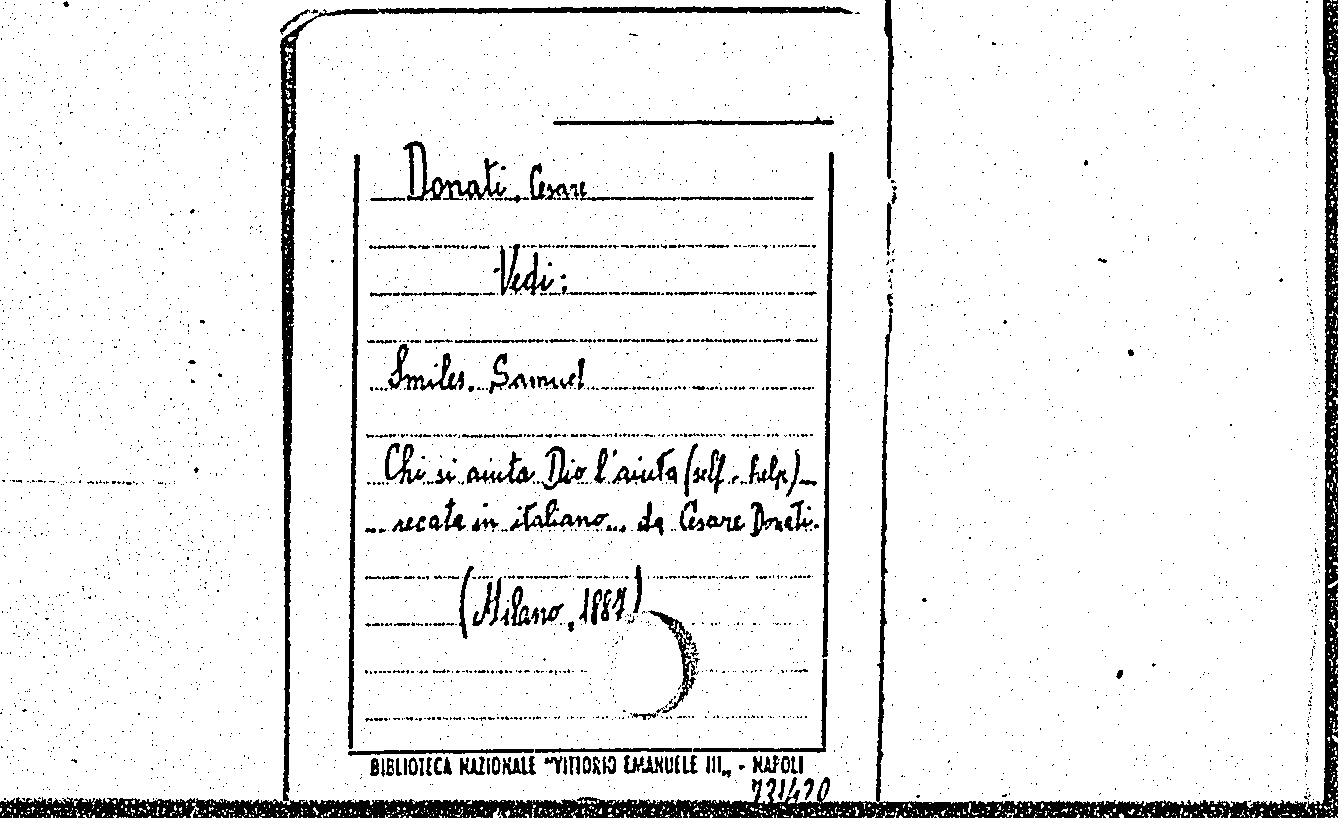 Donati, Cesare
Vedi:
Smiles, Samuel
Chi si aiuta Dio l'aiuta (self-help)_
... recata in italiano... da Cesare Donati.
(Milano, 1887)
BIBLIOTECA NAZIONALE "VITTORIO EMANUELE III„ - NAPOLI